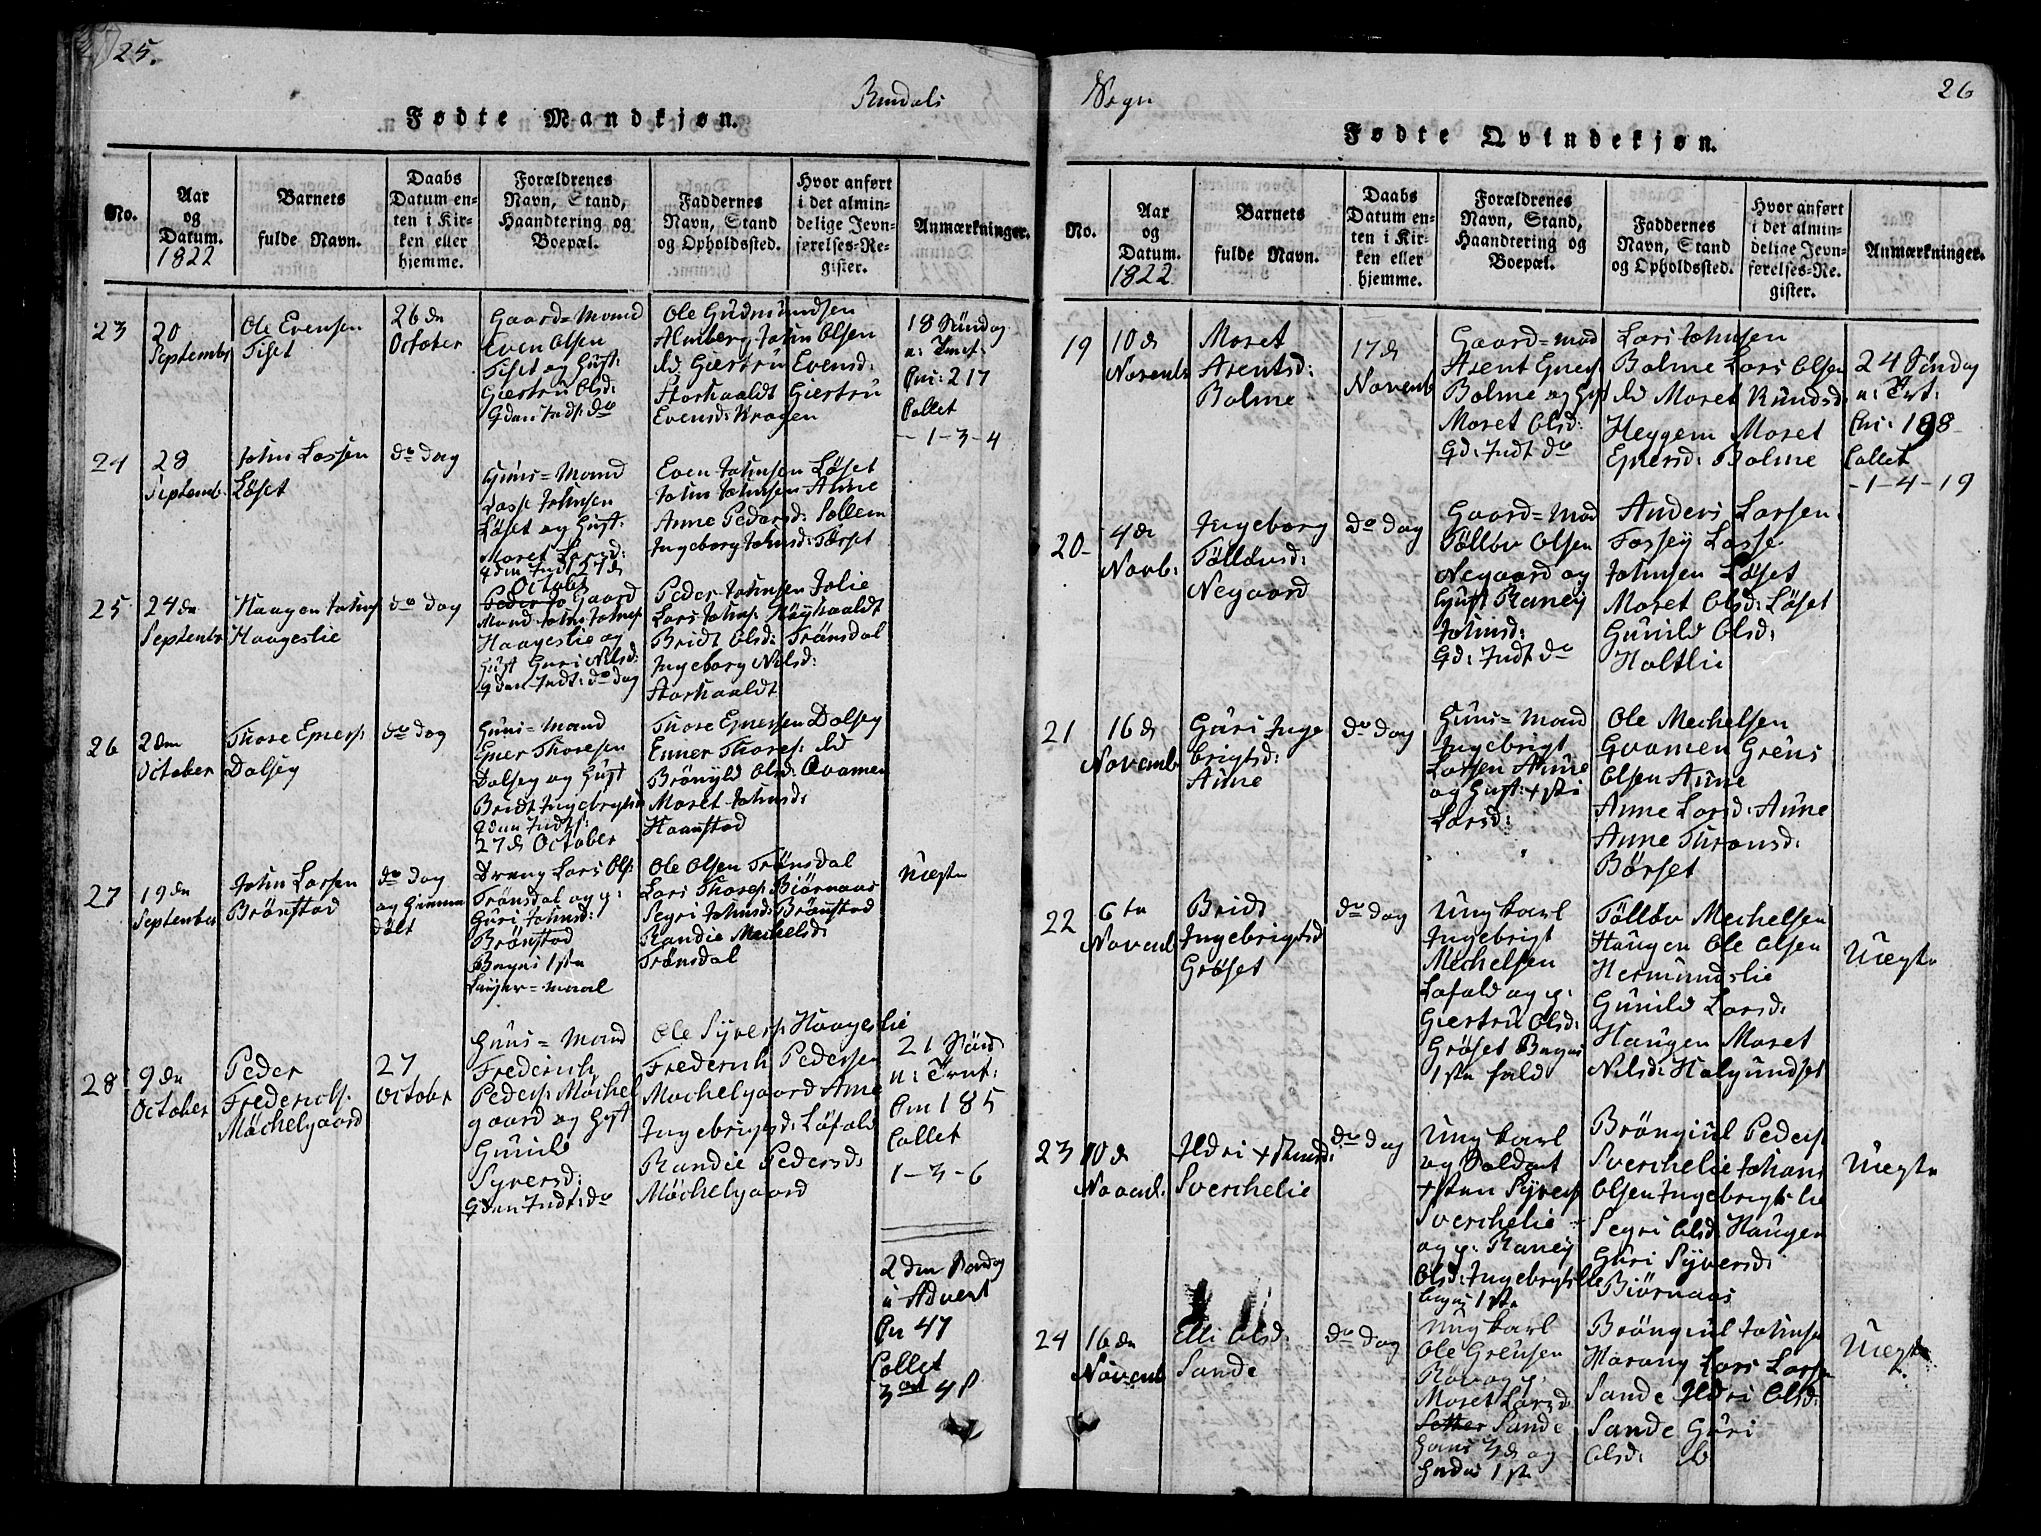 25.
Rindals
Fødte Mandkjøn.
No.
Aar
og
Datum.
1822
Barnets
fulde Navn.
Daabs
Datum en-
ten i Kir-
ken eller
hjemme.
Forældrenes
Navn, Stand,
Haandtering og
Boepæl.
Faddernes
Navn, Stand
og Opholdssted.
Hvor anført
i det almin-
delige Jevn-
førelses-Re-
gister.
Anmærkninger.
23
20
September
Ole Evensen
Tiset
26 de
October
Gaard=Mand
Even Olsen
Tiset og Hust:
Giertru Olsd:
Gden Indt: do
Ole Gudmundsen
Almberg John Olsen
do Giertru Evensd:
Storhaaldt Giertru
Evensd: Kragen
18 Søndag
u: Trnit:
Cni: 217
Collet
-1-3-4
24
28
Septemb.
John Lassen
Løset
do dag
Huus=Mand
Lasse Johnsen
Løset og Hust:
Moret Larsd:
Gden Indt 27 de
October
Even Johnsen Løset
John Johnsen Aune
Anne Pedersd: Sollem
Ingeborg Johnsd: Tørset
25
24 de
Septembr
Haagen Johns
Haageslie
do dag
Gaard
Mand John Johns
Haageslie og
Hust Guri Nilsd:
Gden Indt: do dag
Peder Johnsen Jolie
Lars Johns: Høyhaaldt
Bridt Olsd: Trønsdal
Ingeborg Nilsd:
Storhaaldt
26
2 den
October
Thore Eners:
Dalsey
do dag
Huus=Mand
Ener Thoresen
Dalsey og Hust
Bridt Ingebrigtsd
Gden Indt:
27 de October
Thore Enersen Dalsey
Enner Thores: do
Brønyld Olsd: Qvamen
Moret Johnsd:
Haanstad
27
19 de
September
John Larsen
Brønstad
do dag
og Hiemme
døbt
Dreng Lars Ols:
Trønsdal og p:
Guri Johnsd:
Brønstad
Begges 1ste
Leyer=maal
Ole Olsen Trønsdal
Lars Thores: Biørnaas
Segri Johnsd: Brønstad
Randie Mechelsd:
Trønsdal
Uægte
28
9 de
October
Peder
Frederichs:
Møchelgaard
27
October
Huus=Mand
Frederich
Peders: Møchel
gaard og Hust
Gunild
Syversd:
Gden Indt: do
Ole Syvers: Haageslie
Frederich Pedersen
Møchelgaard Ane
Ingebrigtsd: Løfald
Randie Pedersd:
Møchelgaard
21 Sønd
u: Trnt:
Cni 185
Collet
1-3-6
2 den Søndag
i Advent
Cn 47
Collet
3 ort 4 s
Sogn
26
Fødte Qvindekjøn.
No.
Aar
og
Datum.
1822
Barnets
fulde Navn.
Daabs
Datum en-
ten i Kir-
ken eller
hjemme.
Forældrenes
Navn, Stand,
Haandtering og
Boepæl.
Faddernes
Navn, Stand
og Opholdssted.
Hvor anført
i det almin-
delige Jevn-
førelses-Re-
gister.
Anmærkninger.
19
10 de
Novemb
Moret
Arentsd:
Bolme
17 de
Novemb
Gaard=mad
Arent Eners
Bolme og Hust
Moret Olsd:
Gd: Indt do
Lars Johnsen
Bolme Lars Olsen
do Moret Knudsd
Heggem Moret
Enersd: Bolme
24 Søndag
u: Trt:
Cni: 198
Collet
-1-4-19
20-
4 de
Novb:
Ingeborg
Tøllevsd:
Negaard
do dag
Gaard=mad
Tøllev Olsen
Negaard og
Hust Raney
Johnsd:
Gd: Indt do
Anders Larsen
Fossey Lasse
Johnsen Løset
Moret Olsd: Løset
Gunild Olsd:
Holtlie
21
16 de
Novemb
Guri Inge
brigtsd:
Aune
do dag
Huus=Mand
Ingebrigt
Larsen Aune
og Hust: +sti
Larsd:
Ole Mechelsen
Qvamen Greus
Olsen Aune
Anne Larsd: Aune
Anne Thronsd:
Børset
22
6 te
Novemb
Bridt
Ingebrigtsd
Grøset
do dag
Ung karl
Ingebrigt
Mechelsen
Løfald og p:
Giertru Olsd:
Grøset Begges
1ste fald
Tøllev Mechelsen
Haugen Ole Olsen
Hermundslie
Gunild Larsd:
Haugen Moret
Nilsd: Halgundset
Uægte
23
10 de
Novemb.
Ildri +stensd:
Sverchelie
do dag
Ung karl
og Soldat
+sten Syvers
Sverchelie
og p: Raney
Olsd: Ingebrigtslie
begges 1ste
Brøngiul Peders
Sverchelie Johans
Olsen Ingebrigtslie
Segri Olsd: Haugen
Guri Syversd:
Biørnaas
Uægte
24
16 de
Novemb
Elli Olsd:
Sande
do dag
Ung karl
Ole Greusen
Røv og p:
Moret Larsd
Sande
hans 3 de og
hendes 1ste
Brøngiul Johnsen
Harang Lars Larsen
Sande Ildri Olsd:
Sande Guri
Olsd: do
Uægte